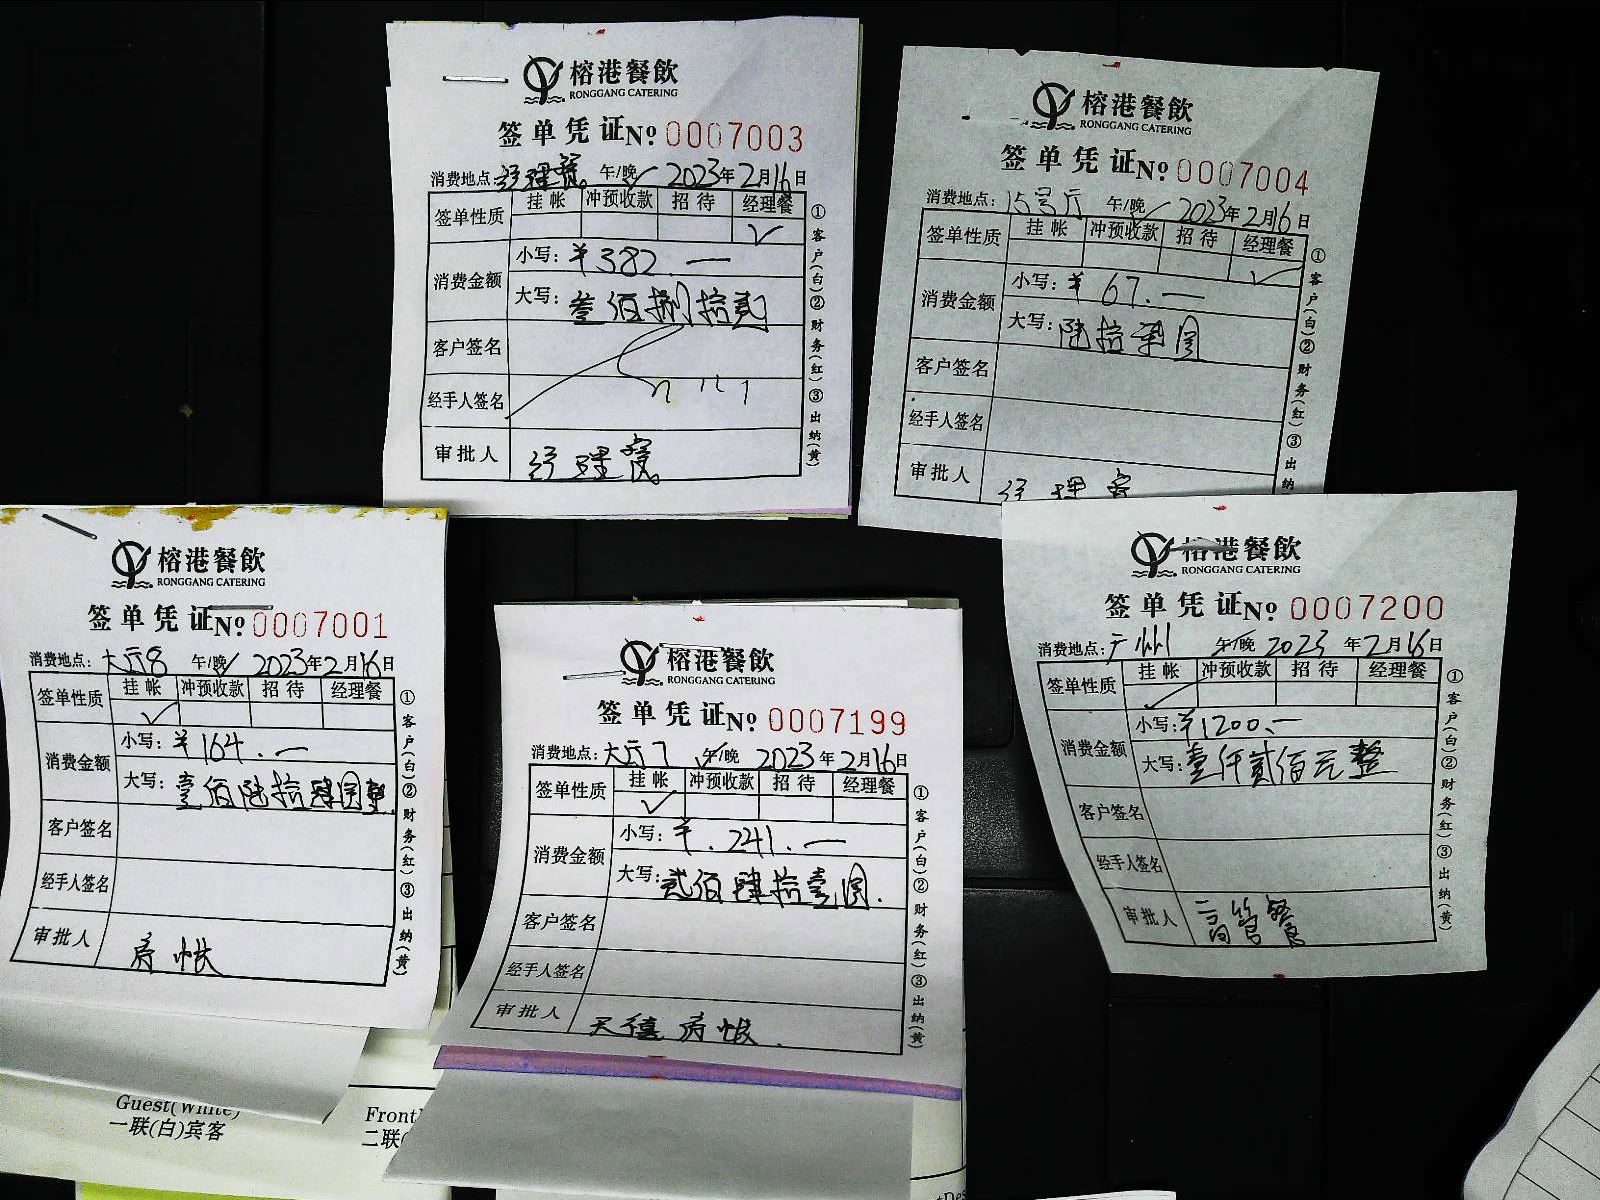 榕港餐飲
RONGGANG CATERING
签单凭证 № 0007003
消费地点: 经理餐 午/晚 2023年2月16日
签单性质 挂帐 冲预收款 招待 经理餐
✓
消费金额 小写: ¥382.—
大写: 叁佰捌拾贰
客户签名
经手人签名
审批人 经理餐
①客户(白)②财务(红)③出纳(黄)
榕港餐飲
RONGGANG CATERING
签单凭证 № 0007004
消费地点: 15号厅 午/晚 2023年2月16日
签单性质 挂帐 冲预收款 招待 经理餐
✓
消费金额 小写: ¥67.—
大写: 陆拾柒圆
客户签名
经手人签名
审批人 经理餐
①客户(白)②财务(红)③出纳
榕港餐飲
RONGGANG CATERING
签单凭证 № 0007001
消费地点: 大厅8 午/晚 2023年2月16日
签单性质 挂帐 冲预收款 招待 经理餐
✓
消费金额 小写: ¥164.—
大写: 壹佰陆拾肆圆整
客户签名
经手人签名
审批人 房帐
①客户(白)②财务(红)③出纳(黄)
Guest(White)
一联(白)宾客
Front
二联(
榕港餐飲
RONGGANG CATERING
签单凭证 № 0007199
消费地点: 大厅7 午/晚 2023年2月16日
签单性质 挂帐 冲预收款 招待 经理餐
✓
消费金额 小写: ¥.241.—
大写: 贰佰肆拾壹圆.
客户签名
经手人签名
审批人 天禧房帐.
①客户(白)②财务(红)③出纳(黄)
榕港餐飲
RONGGANG CATERING
签单凭证 № 0007200
消费地点: 广州 午/晚 2023年2月16日
签单性质 挂帐 冲预收款 招待 经理餐
✓
消费金额 小写: ¥1200.—
大写: 壹仟贰佰元整
客户签名
经手人签名
审批人 高管餐
①客户(白)②财务(红)③出纳(黄)